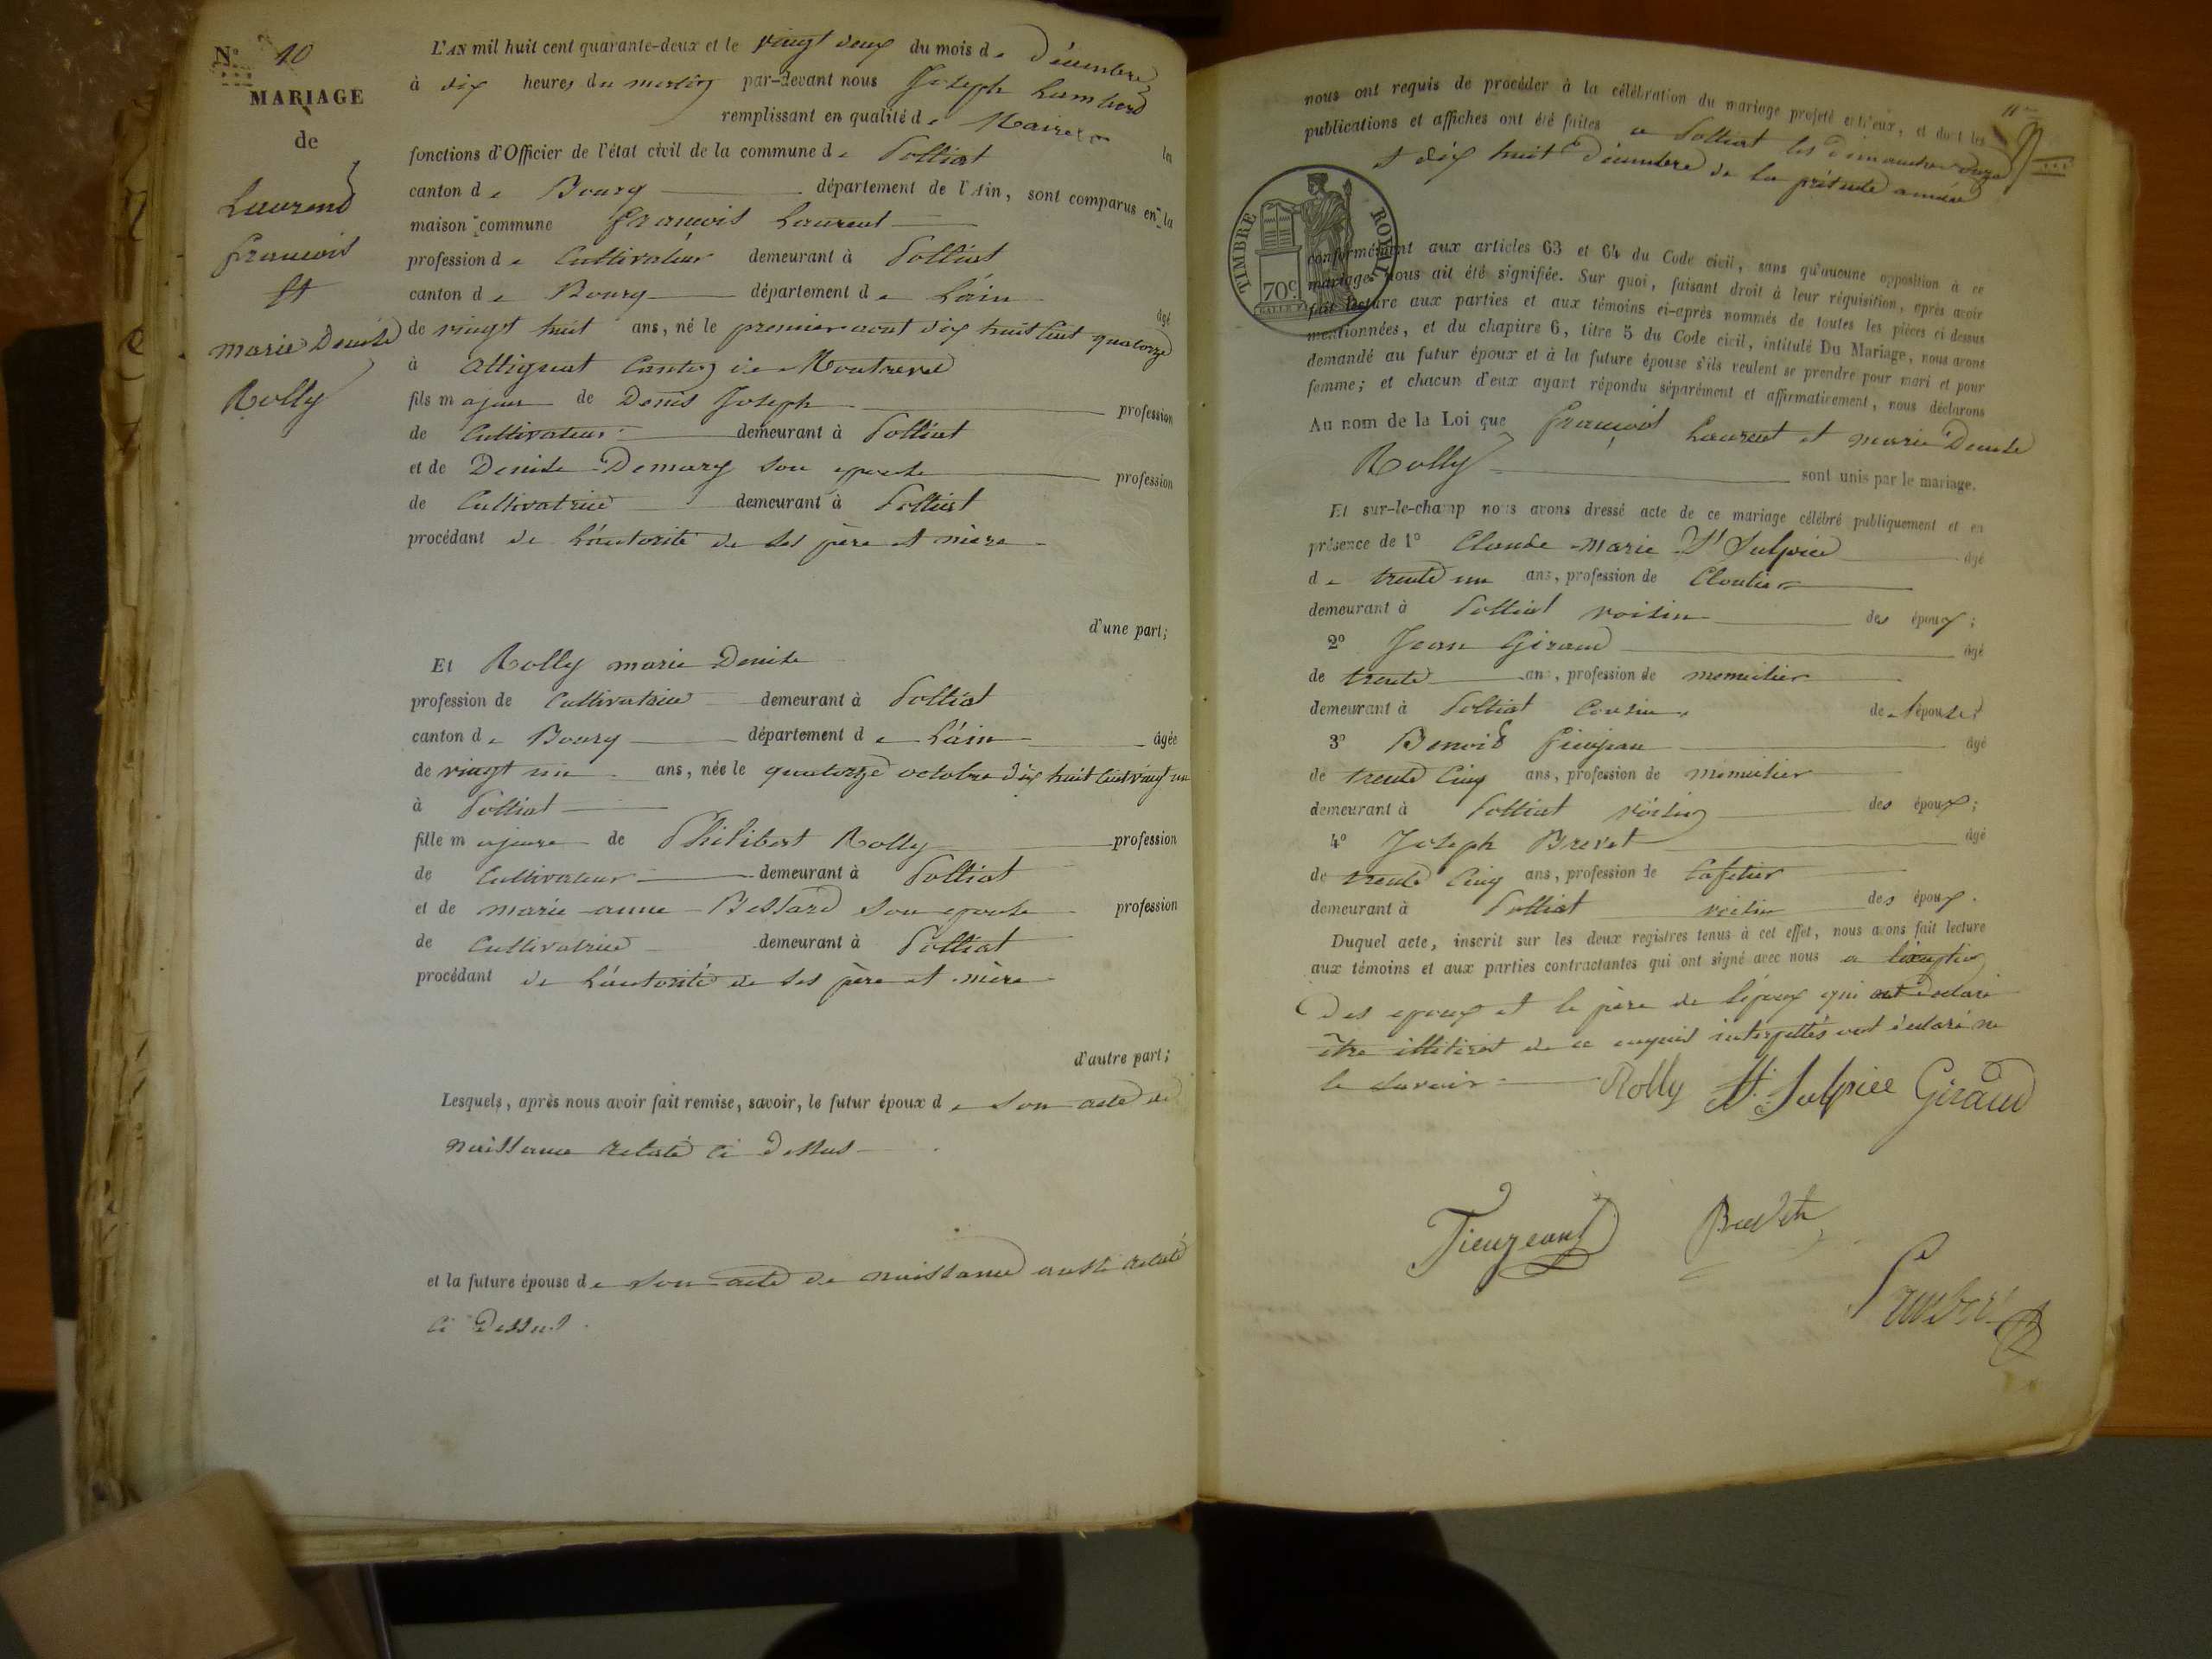 N° 10
MARIAGE
de
Laurend
francois
et
marie Denise
Rolly
L'AN mil huit cent quarante-deux et le vingt deux du mois de Décembre
à dix heures du matin par-devant nous Joseph Lambert
remplissant en qualité de Maire les
fonctions d'Officier de l'état civil de la commune de Polliat
canton de Bourg département de l'Ain, sont comparus en la
maison commune françois Laurent
profession de Cultivateur demeurant à Polliat
canton de Bourg département de L'ain âgé
de vingt huit ans, né le premier aout dix huit Cent quatorze
à Attignat Canton de Montrevel
fils majeur de Denis Joseph profession
de Cultivateur demeurant à Polliat
et de Denise Demary son epouse profession
de Cultivatrice demeurant à Polliat
procédant de L'autorité de ses père et mère
d'une part;
Et Rolly marie Denise
profession de Cultivatrice demeurant à Polliat
canton de Bourg département de L'ain âgée
de vingt un ans, née le quatorze octobre dix huit Cent vingt un
à Polliat
fille majeure de Philibert Rolly profession
de Cultivateur demeurant à Polliat
et de marie anne Bessard son epouse profession
de Cultivatrice demeurant à Polliat
procédant de L'autorité de ses père et mère
d'autre part;
Lesquels, après nous avoir fait remise, savoir, le futur époux de son acte de
naissance relaté Ci Dessus
et la future épouse de son acte de naissance aussi relaté
Ci Dessus.
nous ont requis de procéder à la célébration du mariage projeté entr'eux, et dont les
publications et affiches ont été faites a Polliat les dimanches onze
et dix huit Décembre de la présente année
TIMBRE ROYAL
70c.
conformément aux articles 63 et 64 du Code civil, sans qu'aucune opposition à ce
mariage nous ait été signifiée. Sur quoi, faisant droit à leur réquisition, après avoir
fait lecture aux parties et aux témoins ci-après nommés de toutes les pièces ci dessus
mentionnées, et du chapitre 6, titre 5 du Code civil, intitulé Du Mariage, nous avons
demandé au futur époux et à la future épouse s'ils veulent se prendre pour mari et pour
femme; et chacun d'eux ayant répondu séparément et affirmativement, nous déclarons
Au nom de la Loi que françois Laurent et marie Denise
Rolly sont unis par le mariage.
Et sur-le-champ nous avons dressé acte de ce mariage célébré publiquement et en
présence de 1° Claude Marie St Sulpice âgé
de trente un ans, profession de Cloutier
demeurant à Polliat voisin des époux;
2° Jean Giraud âgé
de trente ans, profession de
demeurant à Polliat Cousin de l'épouse;
3° Benoit fieujean âgé
de trente Cinq ans, profession de
demeurant à Polliat voisin des époux;
4° Joseph Brevet âgé
de trente Cinq ans, profession de Cafetier
demeurant à Polliat voisin des époux.
Duquel acte, inscrit sur les deux registres tenus à cet effet, nous avons fait lecture
aux témoins et aux parties contractantes qui ont signé avec nous a l'exception
Des epoux et le père de l'epoux qui ont déclaré
être illitéré de ce enquis interpellés ont déclaré ne
le savoir Rolly St. Sulpice Giraud
Fieugeant Brevet
Lambert